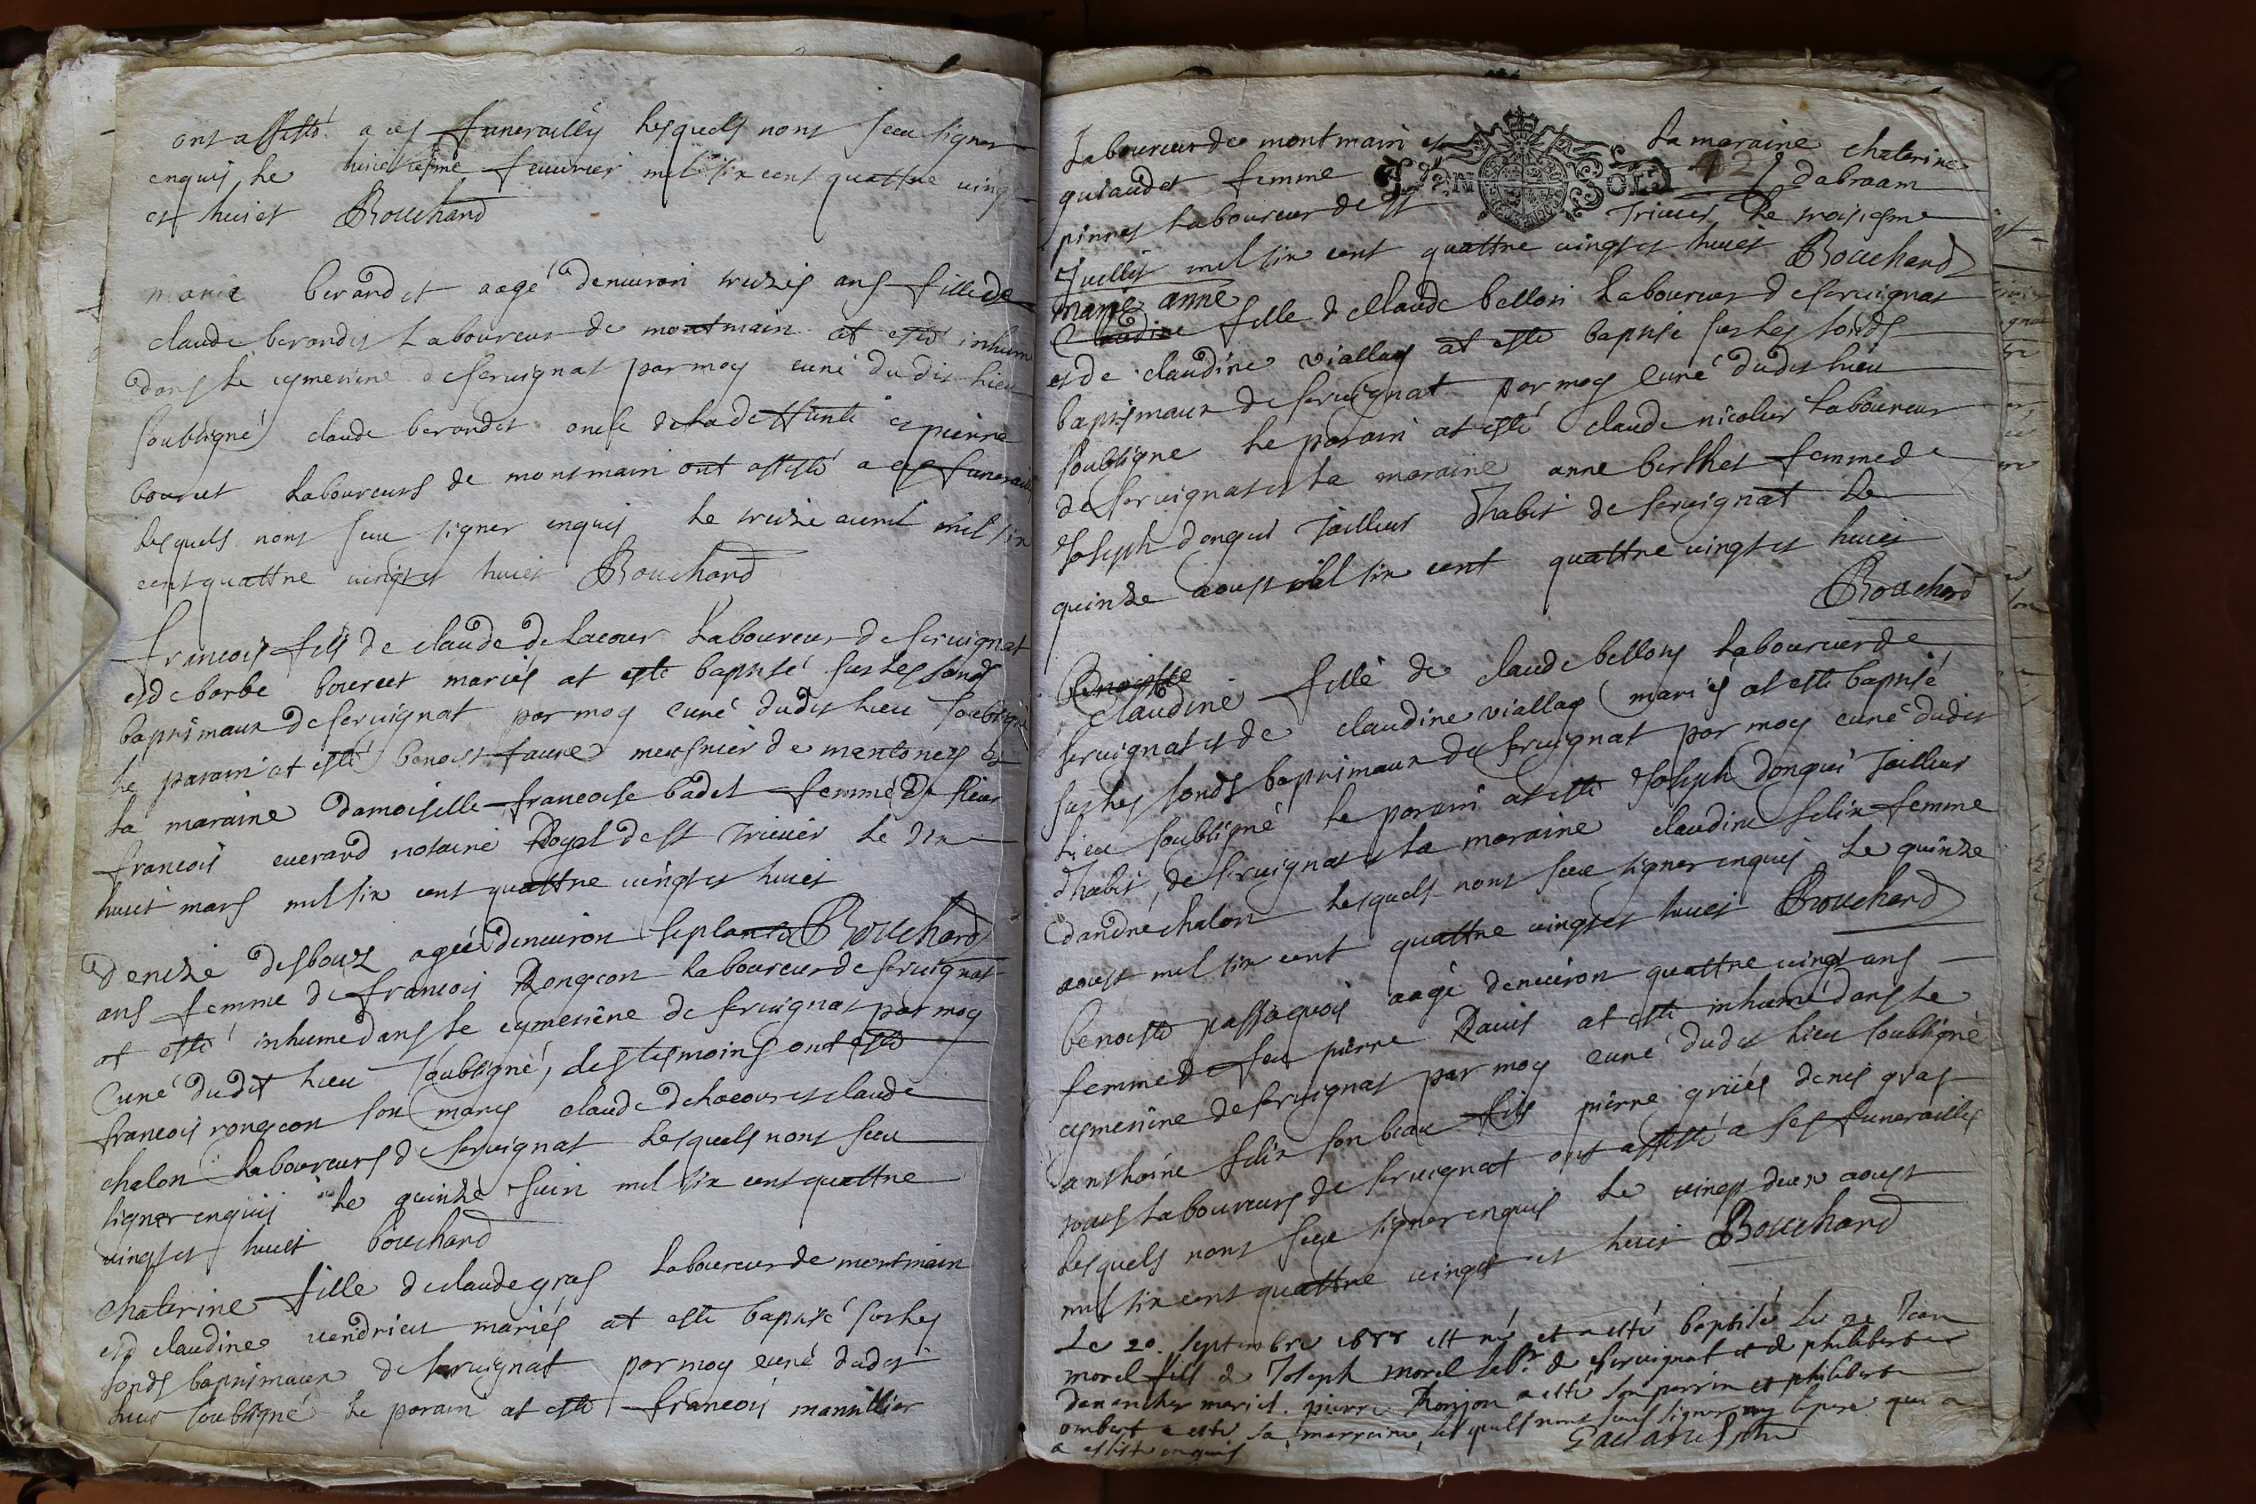 ont assisté a ces funerailles lesquels nont sceu signer
enquis le huictiesme feuurier mil six cent quattre vingt
et huict Bouchard
marie berandet aagé denuiron treizes ans fille de
claude berandet Laboureur de montmain at esté inhum
dans le cymetiere de seruignat par moy curé dudit lieu
soubsigné claude berandet oncle de la deffunte et pierre
bourcet Laboureurs de montmain ont assisté a ces funerail
lesquels nont sceu signer enquis le treize auril mil six
cent quattre vingt et huict Bouchard
francois fils de claude de lacour Laboureur de seruignat
et de barbe bourcet mariés at esté baptisé sur les fonds
baptismaux de seruignat par moy curé dudit lieu soubsigné
le parain at esté benoist faure meusnier de mantoney et
la maraine damoiselle francoise badet femme de sieur
francois euerard notaire Royal de st Triuier le dix
huict mars mil six cent quattre vingt et huict
Bouchard
denize desbouz agée denuiron septante
ans femme de francois Rongeon Laboureur de seruignat
at esté inhume dans le cymetiere de seruignat par moy
Curé dudit lieu soubsigné, les tesmoings ont esté
francois rongeon son mary claude delacour et claude
chalon Laboureurs de seruignat lesquels nont sceu
signer enquis le quinze Juin mil six cent quattre
vingt et huict bouchard
chaterine fille de claude gras Laboureur de montmain
et claudine vendrieu mariés at esté baptisé sur les
fonds baptismaux de seruignat par moy curé dudit
lieu soubsigné le parain at esté francois manillier
Laboureur de montmain et la maraine chaterine
guiaudet femme dabraam
pirret Laboureur de st Triuier le troisiesme
Juillet mil six cent quattre vingt et huict Bouchard
marie anne
Claudine fille de Claude bellon Laboureur de seruignat
et de claudine viallay at esté baptisé sur les fonds
baptismaux de seruignat par moy Curé dudit lieu
soubsigne le parain at esté claude nicolier Laboureur
de seruignat et la maraine anne berthet femme de
Joseph dongui Tailleur dhabit de seruignat le
quinze aoust mil six cent quattre vingt et huict
Bouchard
Benoiste
Claudine fille de claude bellon Laboureur de
seruignat et de claudine viallay mariés at esté baptisé
sur les fonds baptismaux de seruignat par moy curé dudit
lieu soubsigné le parain at esté Joseph dongui Tailleur
dhabit de seruignat et la maraine claudine felix femme
dandré chalon lesquels nont sceu signer enquis le quinze
aoust mil six cent quattre vingt et huict Bouchard
benoiste passaquois aagé denuiron quattre vingt ans
femme de feu pierre Rauis at esté inhumé dans le
cymetiere de seruignat par moy curé dudit lieu soubsigné
anthoine felix son beau fils pierre griués denis gras
tous Laboureurs de seruignat ont assisté a ses funerailles
lesquels nont sceu signer enquis le vingt deux aoust
mil six cent quattre vingt et huict Bouchard
Le 20. septembre 1688 est né et a esté baptisé le 21 Jean
morel fils de Joseph morel lab.r de seruignat et de philiberte
mariés. pierre Ronjon a esté son parrin et philiberte
ombert a esté sa marraine, lesquels nont sceu signer ny le pere qui a
assisté enquis